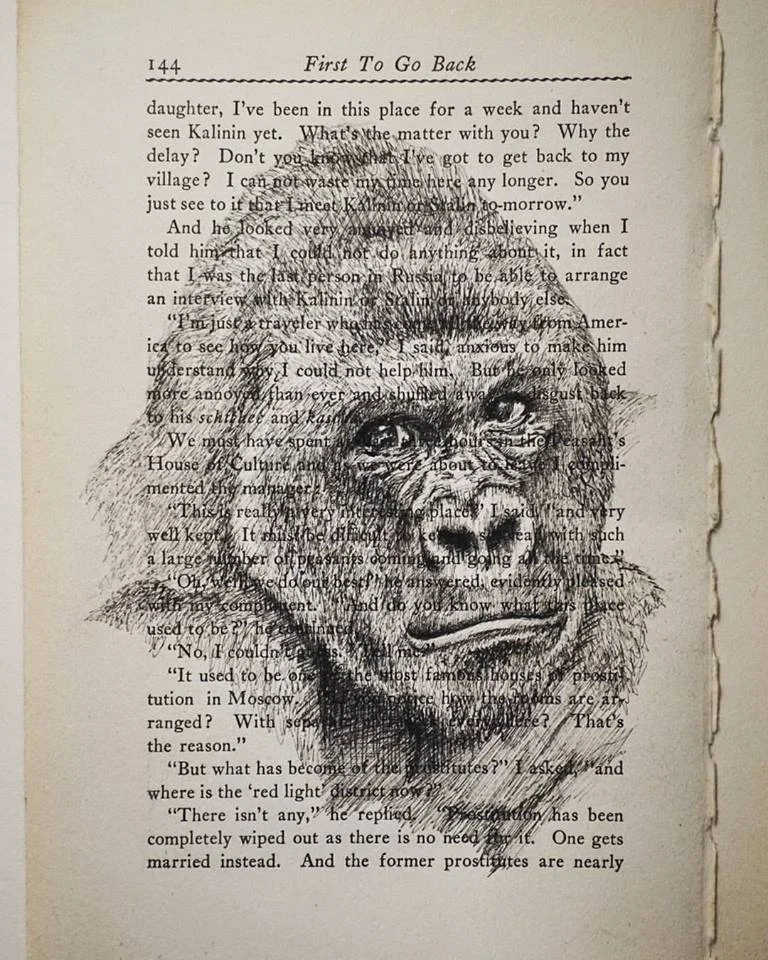 144 First To Go Back
daughter, I've been in this place for a week and haven't
seen Kalinin yet. What's the matter with you? Why the
delay? Don't you know that I've got to get back to my
village? I can not waste my time here any longer. So you
just see to it that I meet Kalinin or Stalin to-morrow."
And he looked very annoyed and disbelieving when I
told him that I could not do anything about it, in fact
that I was the last person in Russia to be able to arrange
an interview with Kalinin or Stalin or anybody else.
"I'm just a traveler who has come all the way from Amer-
ica to see how you live here," I said, anxious to make him
understand why I could not help him. But he only looked
more annoyed than ever and shuffled away in disgust back
to his schtchee and kascha.
We must have spent at least three hours in the Peasant's
House of Culture and as we were about to leave I compli-
mented the manager:
"This is really a very interesting place," I said, "and very
well kept. It must be difficult to keep it so with such
a large number of peasants coming and going all the time."
"Oh, well, we do our best," he answered, evidently pleased
with my compliment. "And do you know what this place
used to be?" he continued.
"No, I couldn't guess. Tell me."
"It used to be one of the most famous houses of prosti-
tution in Moscow. notice how the rooms are ar-
ranged? With separate everywhere? That's
the reason."
"But what has become of the prostitutes?" I asked, "and
where is the 'red light' district now?"
"There isn't any," he replied. "Prostitution has been
completely wiped out as there is no need for it. One gets
married instead. And the former prostitutes are nearly